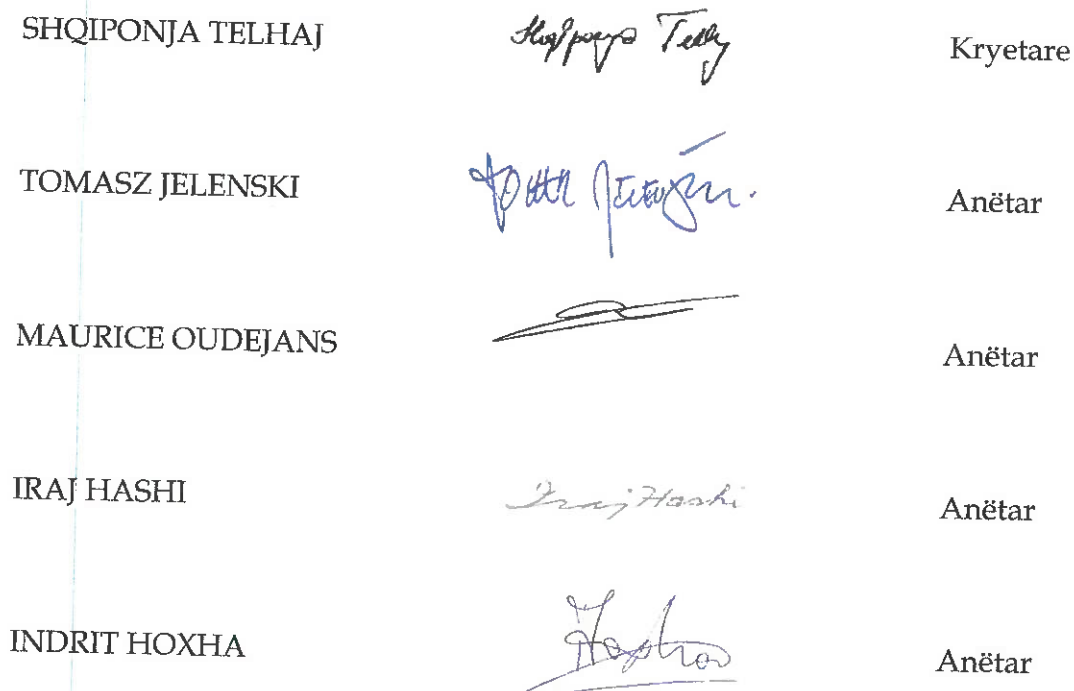 SHQIPONJA TELHAJ Shqiponja Telhaj Kryetare
TOMASZ JELENSKI Anëtar
MAURICE OUDEJANS Anëtar
IRAJ HASHI Iraj Hashi Anëtar
INDRIT HOXHA Anëtar